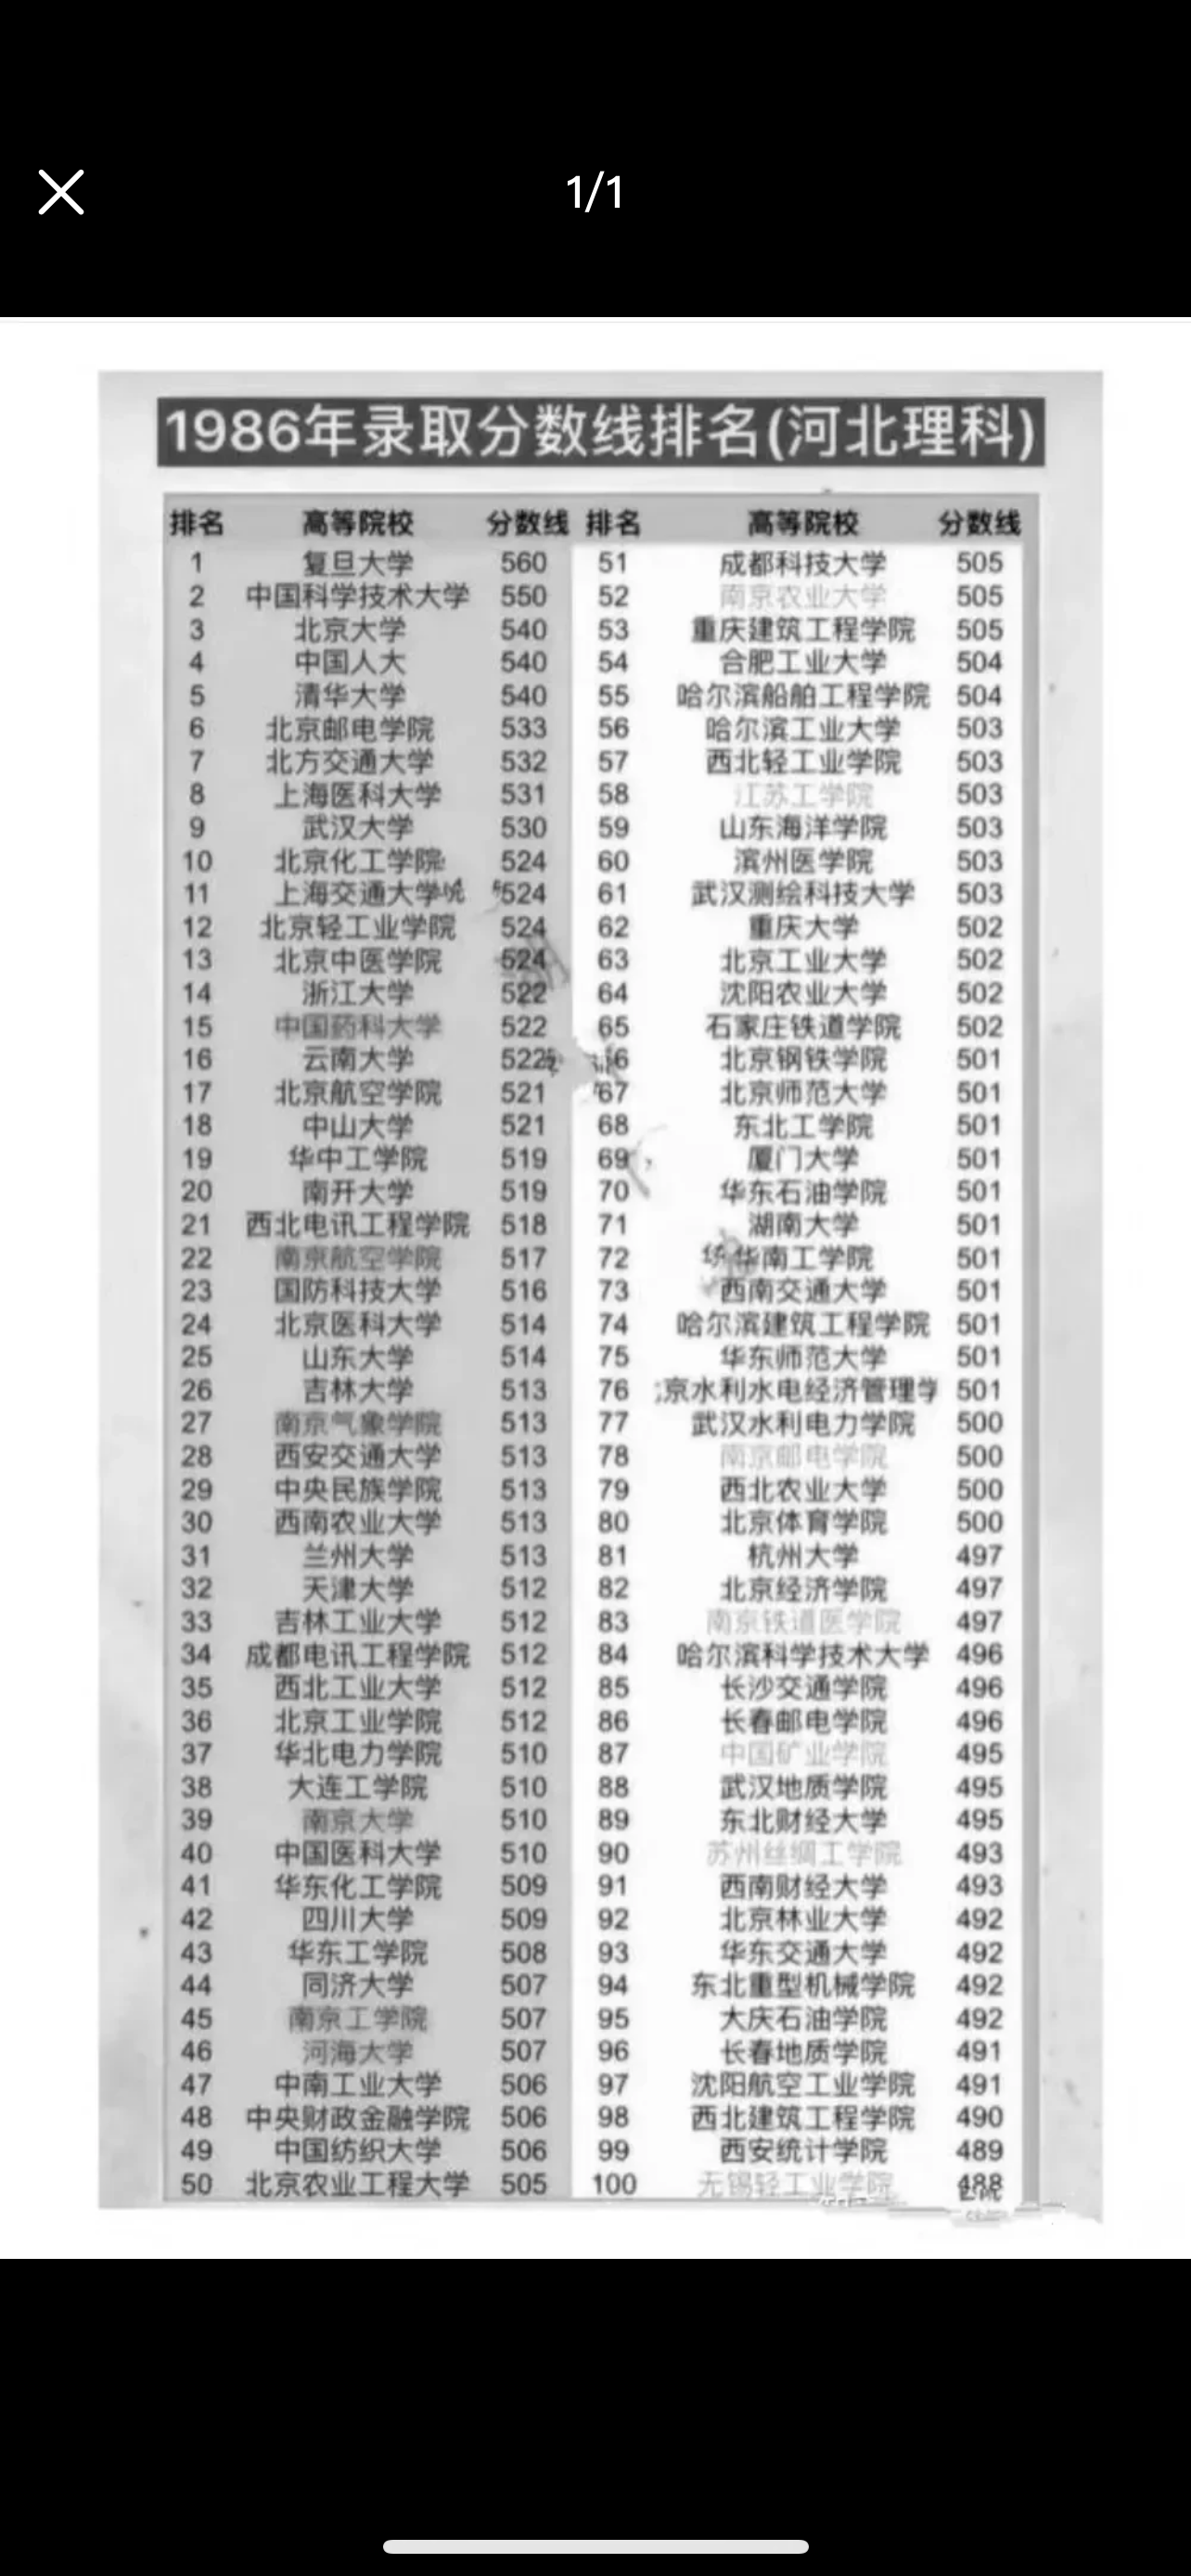 1/1
1986年录取分数线排名(河北理科)
排名 高等院校 分数线 排名 高等院校 分数线
1 复旦大学 560 51 成都科技大学 505
2 中国科学技术大学 550 52 南京农业大学 505
3 北京大学 540 53 重庆建筑工程学院 505
4 中国人大 540 54 合肥工业大学 504
5 清华大学 540 55 哈尔滨船舶工程学院 504
6 北京邮电学院 533 56 哈尔滨工业大学 503
7 北方交通大学 532 57 西北轻工业学院 503
8 上海医科大学 531 58 江苏工学院 503
9 武汉大学 530 59 山东海洋学院 503
10 北京化工学院 524 60 滨州医学院 503
11 上海交通大学 524 61 武汉测绘科技大学 503
12 北京轻工业学院 524 62 重庆大学 502
13 北京中医学院 524 63 北京工业大学 502
14 浙江大学 522 64 沈阳农业大学 502
15 中国药科大学 522 65 石家庄铁道学院 502
16 云南大学 522 6 北京钢铁学院 501
17 北京航空学院 521 67 北京师范大学 501
18 中山大学 521 68 东北工学院 501
19 华中工学院 519 69 厦门大学 501
20 南开大学 519 70 华东石油学院 501
21 西北电讯工程学院 518 71 湖南大学 501
22 南京航空学院 517 72 华南工学院 501
23 国防科技大学 516 73 西南交通大学 501
24 北京医科大学 514 74 哈尔滨建筑工程学院 501
25 山东大学 514 75 华东师范大学 501
26 吉林大学 513 76 京水利水电经济管理学 501
27 南京气象学院 513 77 武汉水利电力学院 500
28 西安交通大学 513 78 南京邮电学院 500
29 中央民族学院 513 79 西北农业大学 500
30 西南农业大学 513 80 北京体育学院 500
31 兰州大学 513 81 杭州大学 497
32 天津大学 512 82 北京经济学院 497
33 吉林工业大学 512 83 南京铁道医学院 497
34 成都电讯工程学院 512 84 哈尔滨科学技术大学 496
35 西北工业大学 512 85 长沙交通学院 496
36 北京工业学院 512 86 长春邮电学院 496
37 华北电力学院 510 87 中国矿业学院 495
38 大连工学院 510 88 武汉地质学院 495
39 南京大学 510 89 东北财经大学 495
40 中国医科大学 510 90 苏州丝绸工学院 493
41 华东化工学院 509 91 西南财经大学 493
42 四川大学 509 92 北京林业大学 492
43 华东工学院 508 93 华东交通大学 492
44 同济大学 507 94 东北重型机械学院 492
45 南京工学院 507 95 大庆石油学院 492
46 河海大学 507 96 长春地质学院 491
47 中南工业大学 506 97 沈阳航空工业学院 491
48 中央财政金融学院 506 98 西北建筑工程学院 490
49 中国纺织大学 506 99 西安统计学院 489
50 北京农业工程大学 505 100 无锡轻工业学院 488